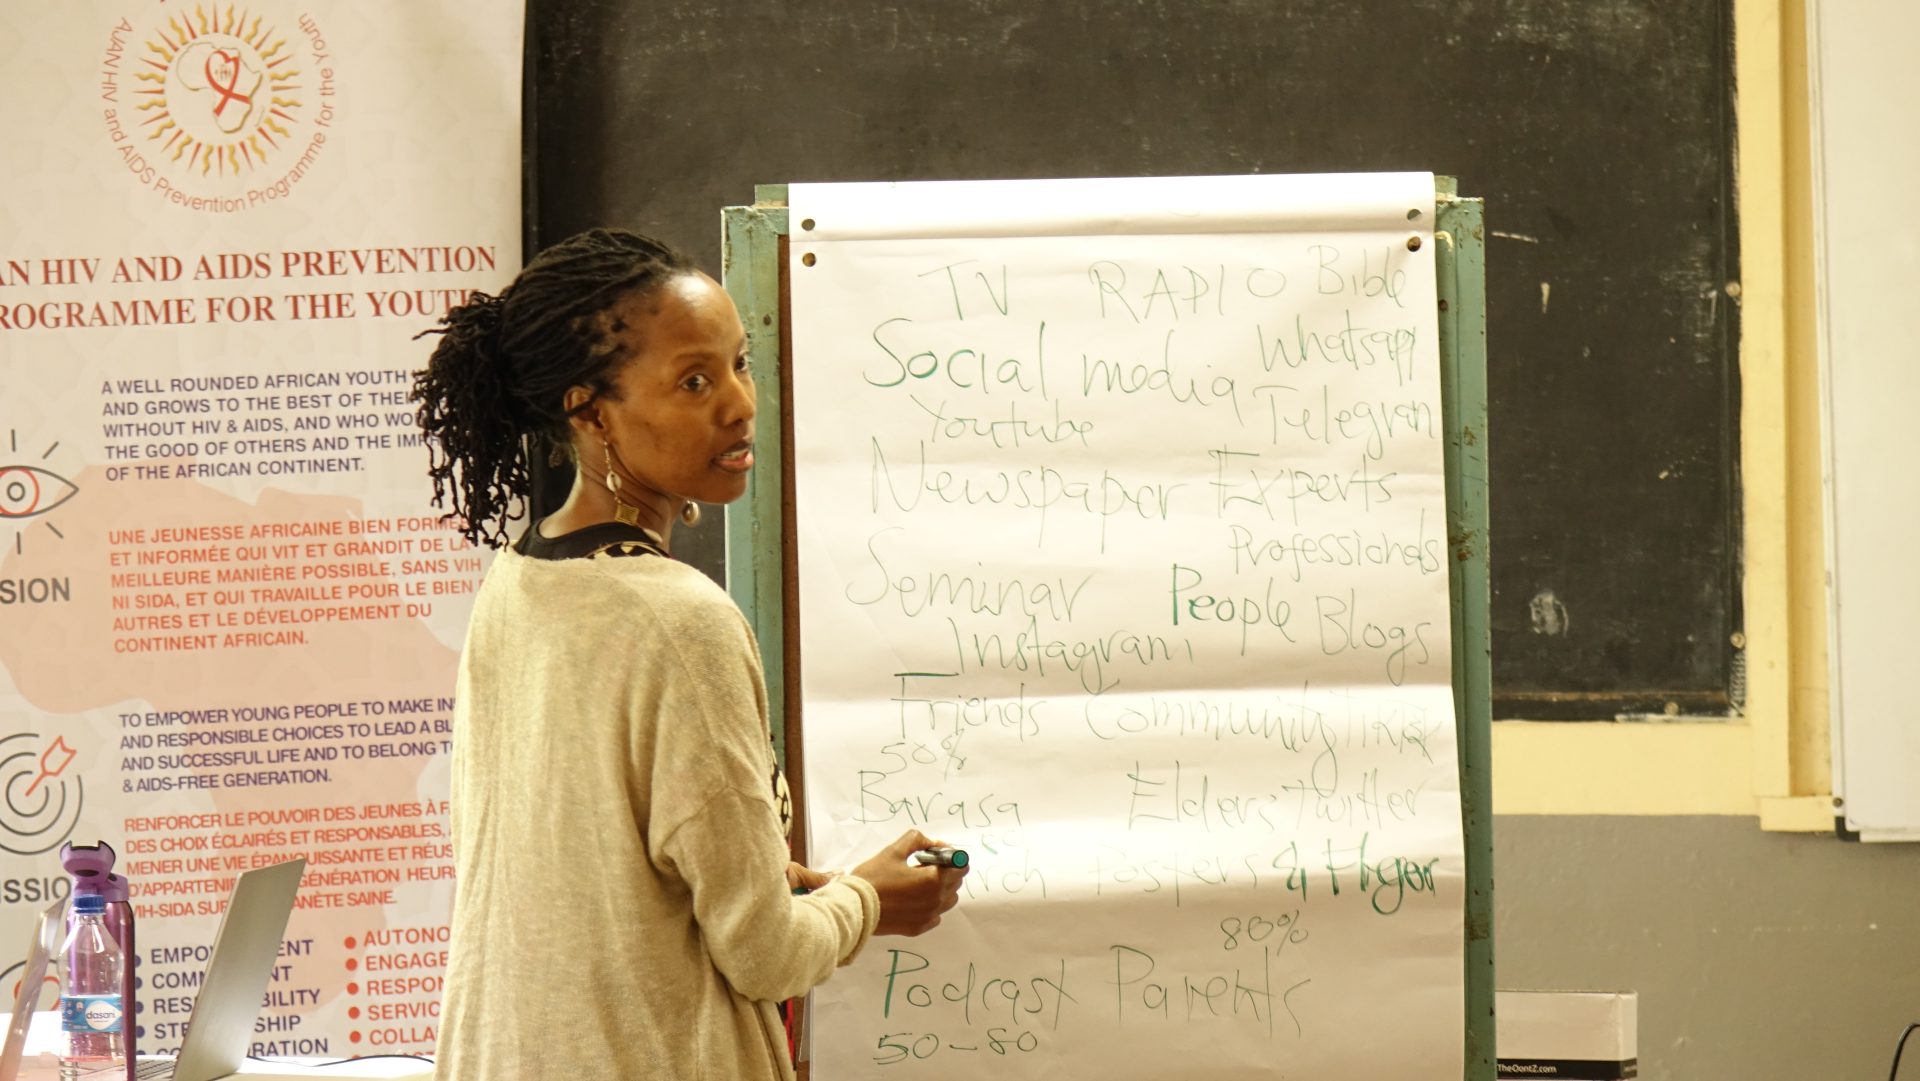 AJAN HIV and AIDS Prevention Programme for the Youth
AN HIV AND AIDS PREVENTION
ROGRAMME FOR THE YOUTH
A WELL ROUNDED AFRICAN YOUTH
AND GROWS TO THE BEST OF THEI
WITHOUT HIV & AIDS, AND WHO WO
THE GOOD OF OTHERS AND THE IMPR
OF THE AFRICAN CONTINENT.
UNE JEUNESSE AFRICAINE BIEN FORMÉE
ET INFORMÉE QUI VIT ET GRANDIT DE LA
MEILLEURE MANIÈRE POSSIBLE, SANS VIH
NI SIDA, ET QUI TRAVAILLE POUR LE BIEN
AUTRES ET LE DÉVELOPPEMENT DU
CONTINENT AFRICAIN.
SION
TO EMPOWER YOUNG PEOPLE TO MAKE IN
AND RESPONSIBLE CHOICES TO LEAD A BL
AND SUCCESSFUL LIFE AND TO BELONG T
& AIDS-FREE GENERATION.
RENFORCER LE POUVOIR DES JEUNES À F
DES CHOIX ÉCLAIRÉS ET RESPONSABLES,
MENER UNE VIE ÉPANOUISSANTE ET RÉUS
D'APPARTENI GÉNÉRATION HEUR
VIH-SIDA SUR ANÈTE SAINE.
SSIO
EMPO ENT
COM NT
RES BILITY
STE SHIP
CO RATION
AUTONO
ENGAGE
RESPON
SERVIC
COLLA
dasani
TV RADIO Bible
Social media Whatsapp
Youtube Telegram
Newspaper Experts
Professionals
Seminar People Blogs
Instagram
Friends Community Tiktok
50%
Barasa Elders Twitter
rch Posters & Flyer
80%
Podcast Parents
50-80
TheOontZ.com